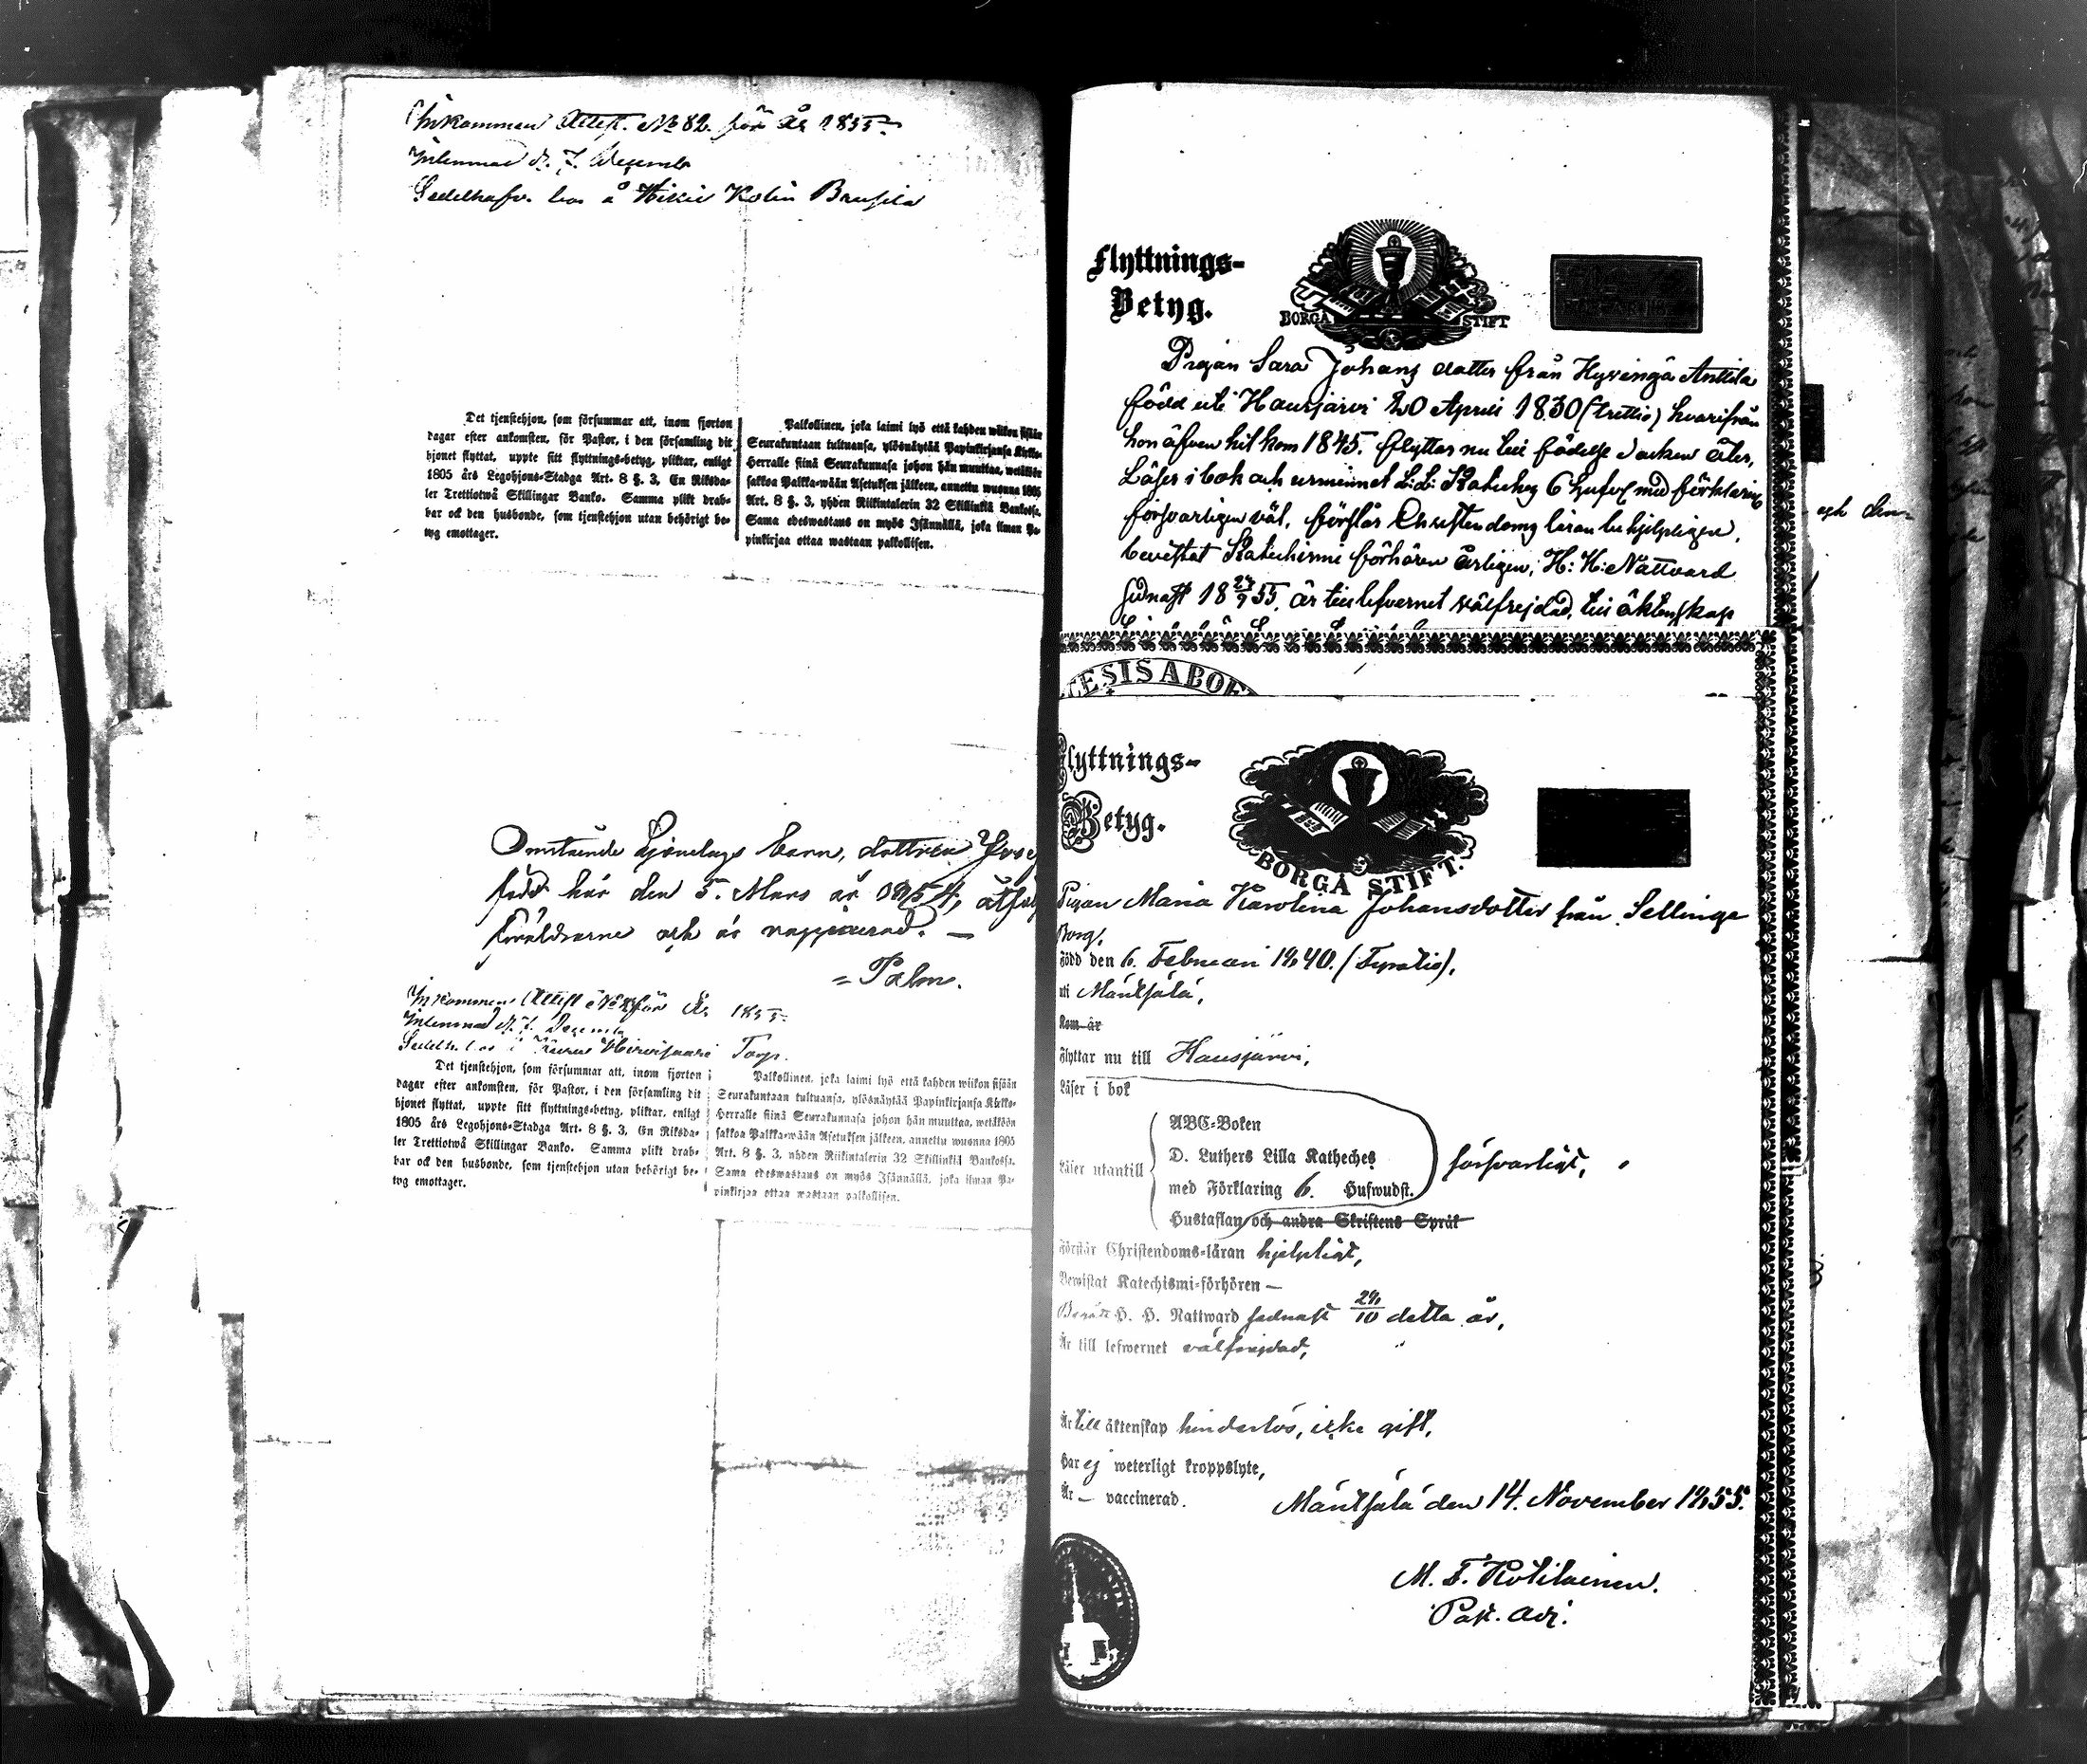 Inkommen Attest. No 82. för År 1855
Inlemnad d. 7. Decemb
Sedelhafv. bor å Hikiä Kolin Brusila
Det tjenstehjon, som försummar att, inom fjorton
dagar efter ankomsten, för Pastor, i den församling dit
hjonet flyttat, uppte sitt flyttnings-betyg, pliktar, enligt
1805 års Legohjons-Stadga Art. 8 §. 3, En Riksda-
ler Trettiotwå Skillingar Banko. Samma plikt drab-
bar ock den husbonde, som tjenstehjon utan behörigt be-
tyg emottager.
Palkollinen, joka laimi lyö että kahden wiikon sisään
Seurakuntaan tultuansa, ylösnäytää Papinkirjansa Kirkko-
Herralle siinä Seurakunnasa johon hän muuttaa, wetäköön
sakkoa Palkka-wään Asetuksen jälkeen, annettu wuonna 1805
Art. 8 §. 3, yhden Riikintalerin 32 Skillinkiä Bankossa.
Sama edeswastaus on myös Isännällä, joka ilman Pa-
pinkirjaa ottaa wastaan palkollisen.
Omstående Hjonelags barn, dottren
född här den 5. Mars år 1854, åtföl
föräldrarne och är vaccinerad. —
= Palm.
Inkommen Attest No för År 1855
Inlemnad d. 7. Decemb
Sedelh. bor i Hirvisuari Torp.
Det tjenstehjon, som försummar att, inom fjorton
dagar efter ankomsten, för Pastor, i den församling dit
hjonet flyttat, uppte sitt flyttnings-betyg, pliktar, enligt
1805 års Legohjons-Stadga Art. 8 §. 3, En Riksda-
ler Trettiotwå Skillingar Banko. Samma plikt drab-
bar ock den husbonde, som tjenstehjon utan behörigt be-
tyg emottager.
Palkollinen, joka laimi lyö että kahden wiikon sisään
Seurakuntaan tultuansa, ylösnäytää Papinkirjansa Kirkko-
Herralle siinä Seurakunnasa johon hän muuttaa, wetäköön
sakkoa Palkka-wään Asetuksen jälkeen, annettu wuonna 1805
Art. 8 §. 3, yhden Riikintalerin 32 Skillinkiä Bankossa.
Sama edeswastaus on myös Isännällä, joka ilman Pa-
pinkirjaa ottaa wastaan palkollisen.
Flyttnings-
Betyg.
BORGÅ STIFT
Pigan Sara Johans dotter från Hyvingä Anttila
född uti Hausjärvi 20 April 1830 (trettio) hvarifrån
hon äfven hit kom 1845. flyttar nu till födelse socken åter,
Läser i bok och ur minnet L: L: Kateches 6 hufvst med förklaring
forsvarligen väl, förstår Christendoms läran behjelpligen,
bevistat Katechismi förhören årligen, H: H: Nattvard
sednast 18 24/9 55, är till lefvernet välfrejdad, till äktenskap
ESISABO
Flyttnings-
Betyg.
BORGÅ STIFT.
Pigan Maria Karolina Johansdotter från Sellinge
Borg,
Född den 6. Februari 1840. (Fyratio),
uti Mäntsälä,
Kom år
Flyttar nu till Hausjärvi,
Läser i bok
Läser utantill
ABC-Boken
D. Luthers Lilla Katheches
med Förklaring 6. Hufwudst.
försvarligt,
Hustaflan och andra Skriftens Språk
Förstår Christendoms-läran hjelpligt,
Bewistat Katechismi-förhören —
Begått H. H. Nattward sednast 28/10 detta år,
Är till lefwernet välfrejdad,
Är till äktenskap hinderlös, icke gift,
Har ej weterligt kroppslyte,
Är — vaccinerad.
Mäntsälä den 14. November 1855.
M. F. Kotilainen.
Past. Adj.
och den-